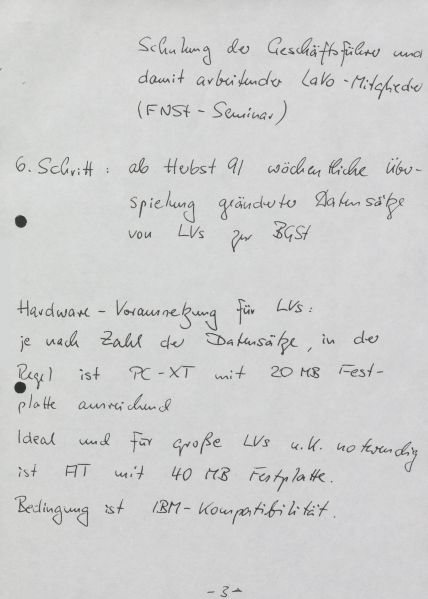 Schulung der Geschäftsführer und
damit arbeitender LaVo-Mitglieder
(FNSt - Seminar)
6. Schritt : ab Herbst 91 wöchentliche Über-
spielung geänderter Datensätze
von LVs zur BGSt
Hardware - Voraussetzung für LVs :
je nach Zahl der Datensätze, in der
Regel ist PC-XT mit 20 MB Fest-
platte ausreichend
Ideal und für große LVs u.U. notwendig
ist AT mit 40 MB Festplatte.
Bedingung ist IBM-Kompatibilität.
- 3 -